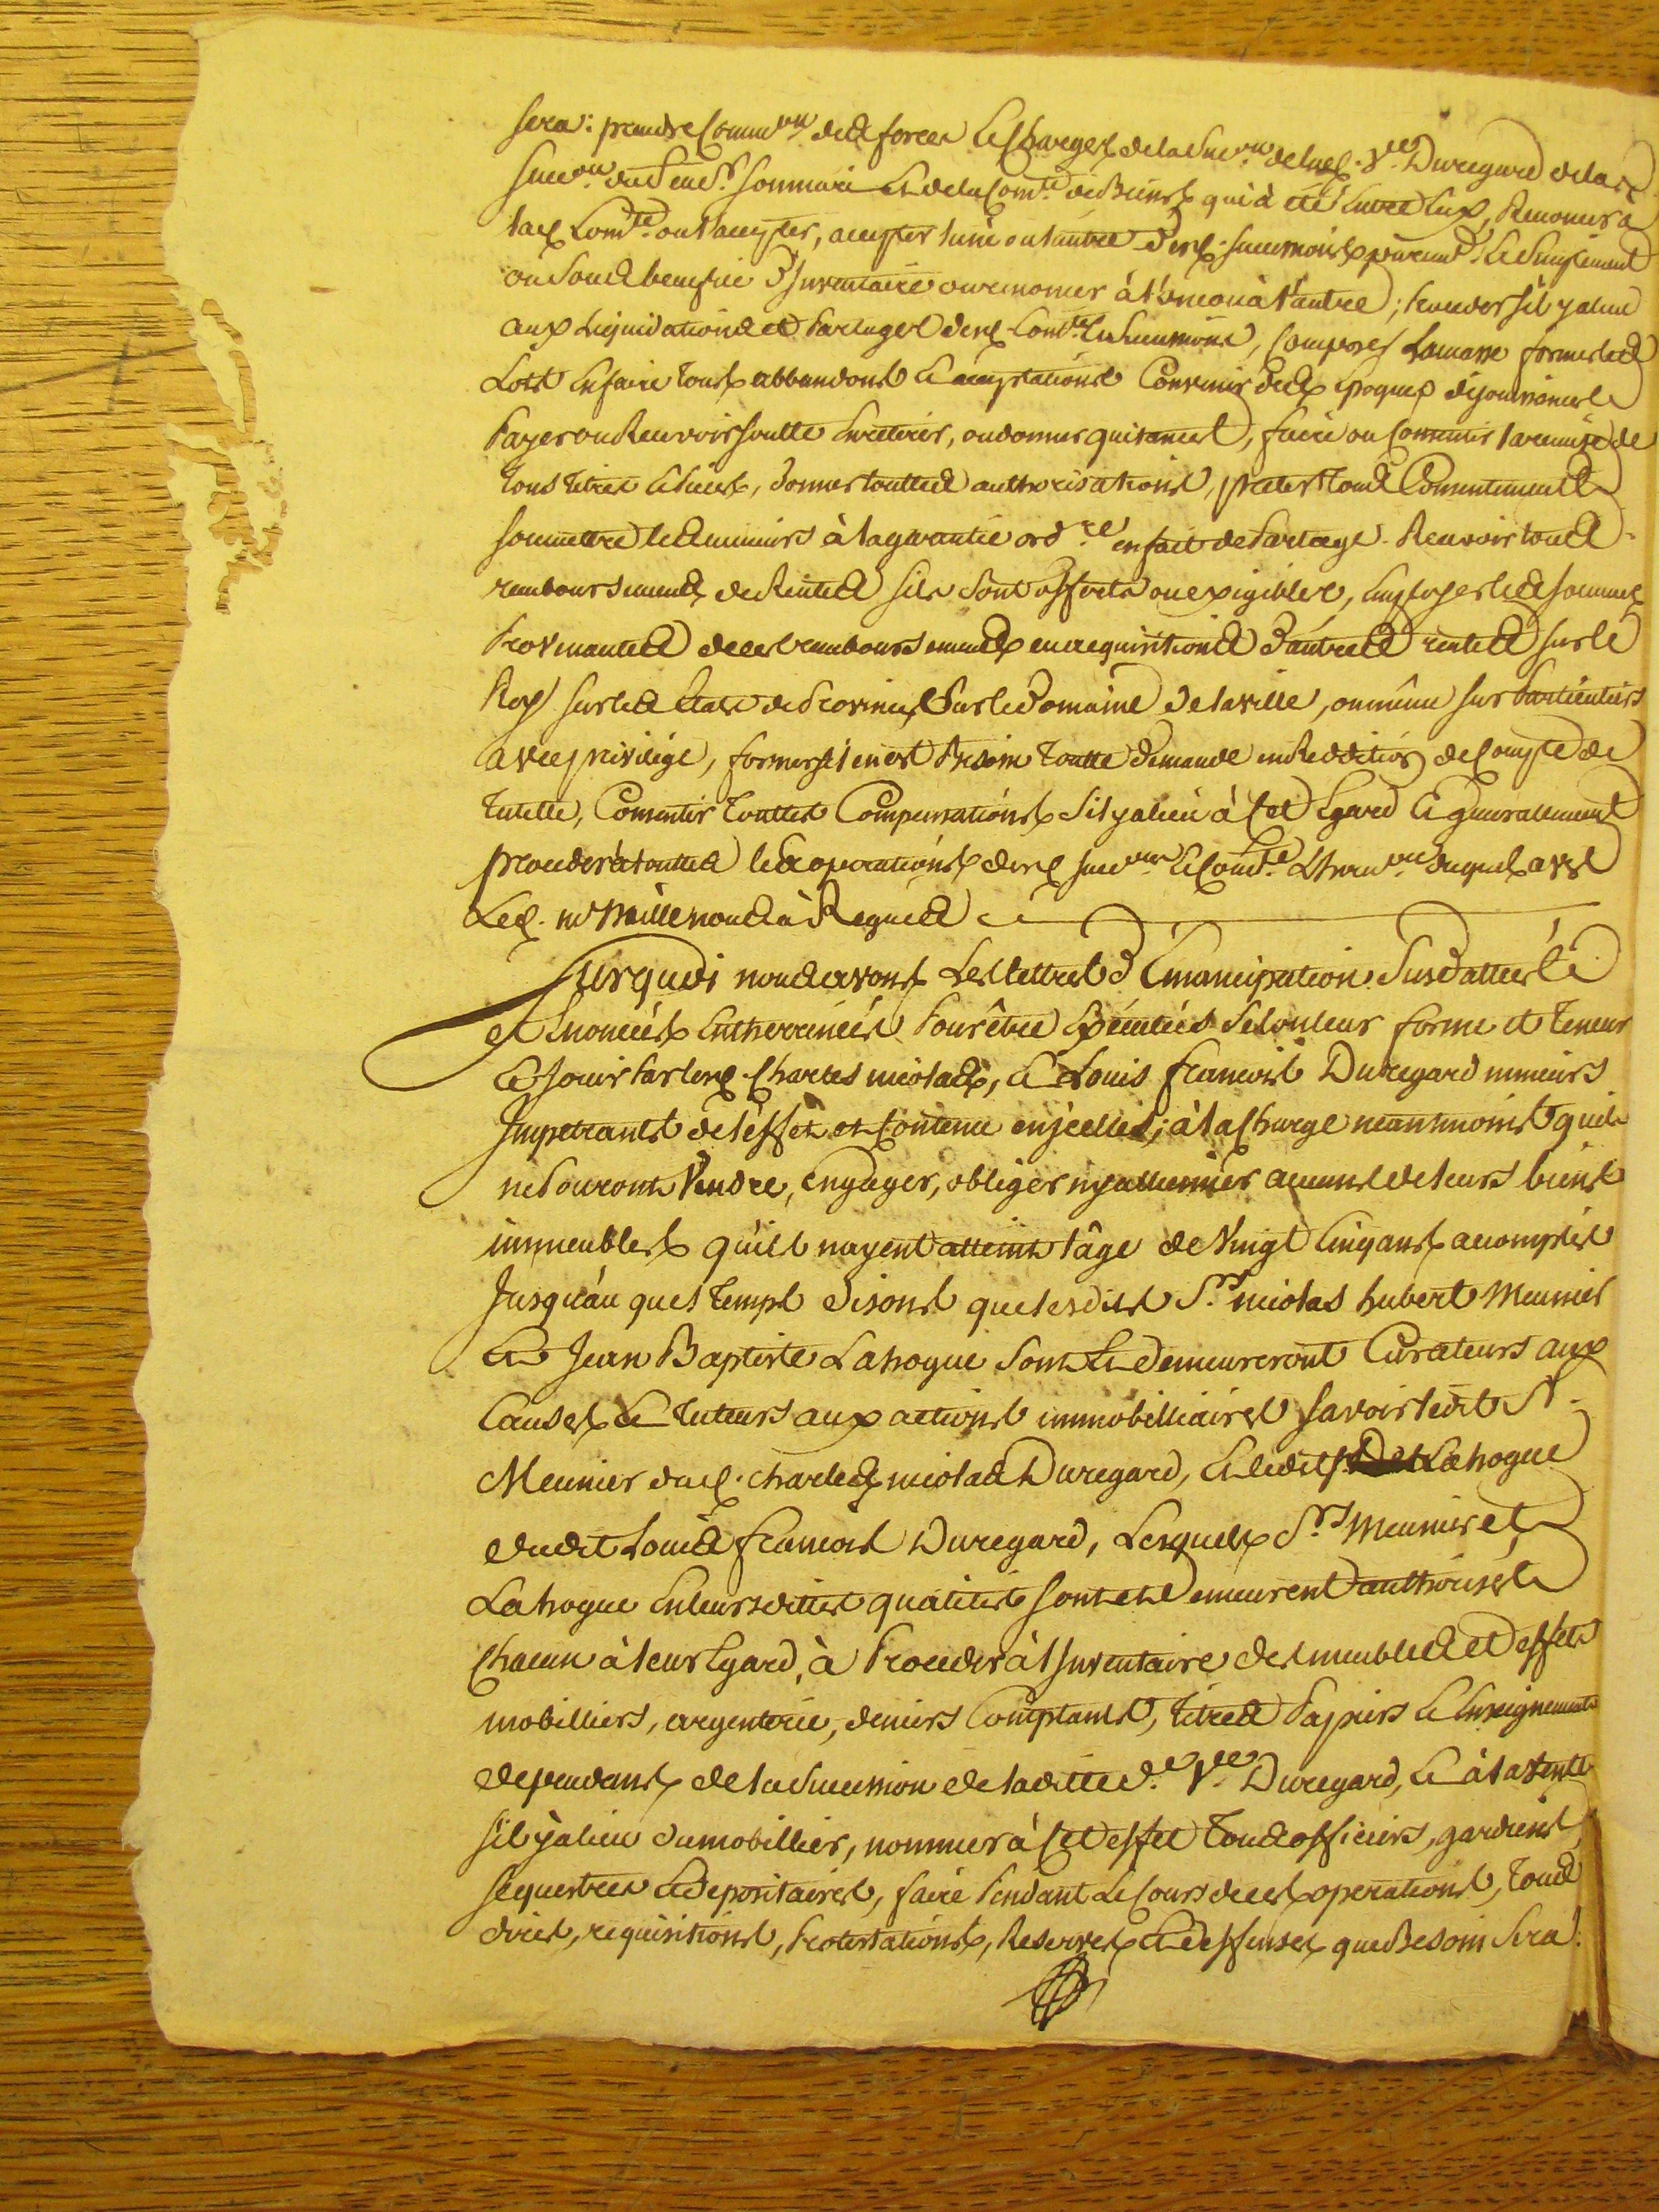 sera: prendre Commu^on des forces et Charges de la Succ^on de lad. V^ve Duregard de la
Succ^on dud feu S^r. Sommari et de la Com^té de Biens qui à été Entre Eux, Renoncer à
lad Com^té ou l'accepter, accepter l'une ou l'autre desd. successions purem^t et Simplement
ou Sous benefice d'Inventaire ou renoncer à l'une ou à l'autre; proceder s'il y a lieu
aux Liquidations et Partages desd Com^té et Successions, Composer La masse former les
Lots En faire tous abbandons et acceptations Convenir des Epoques de jouissances
Payer ou Recevoir soulte En retirer, ou donner quitances, faire ou Consentir la remise de
tous titres et pieces, donner touttes authorisations, prêter tous Consentements
soumettre les mineurs à la garantie ord^re en fait de Partage. Recevoir tous
remboursements de Rentes s'ils sont offerts ou exigibles, Employer les sommes
Provenantes de ces remboursements en acquisitions d'autres rentes sur le
Roy sur les Etats de Provinces Sur le Domaine de la ville, ou même sur Particuliers
avec privilége, former s'il en est Besoin toutte demande en Reddition de Compte de
tutelle, Consentir touttes Compensations S'il y a lieu à Cet Egard et generallement
proceder à touttes les operations desd Succ^ons et Com^té duquel avis
Led. m^e nous à Requis
Surquoi nous avons Les lettres d'Emancipation Susdattées
et Enoncées Entherinées Pour être Exécutées Selon leur forme et teneur
et Jouir Par lesd. Charles nicolas, et Louis françois Duregard mineurs
Impetrants de l'effet et Contenu en jcelles; à la Charge neantmoins qu'ils
ne Pouront Vendre, engager, obliger ny alliener aucuns de leurs biens
immeubles qu'ils n'ayent atteint l'âge de Vingt Cinq ans accomplis
Jusqu'au quel temps disons que lesdits S^rs nicolas hubert Meunier
et Jean Baptiste Lahogue Sont et Demeureront Curateurs aux
Causes et tuteurs aux actions immobilliaires Savoir ledit S^r.
Meunier dud. Charles nicolas Duregard, et ledit S^r. Lahogue
dudit Louis françois Duregard, Lesquels S^rs Meunier et
Lahogue En leursdittes qualités sont et Demeurent authorisés
Chacun à leur Egard, à Proceder à l'Inventaire des meubles et effets
mobilliers, argenterie, deniers Comptants, titres Papiers et Enseignements
dependants de la Succession de laditte d^e V^ve Duregard, et à la vente
S'il y a lieu du mobillier, nommer à Cet effet tous officiers, gardiens
sequestres et depositaires, faire Pendant Le Cours de ces operations, tous
dires, requisitions, Protestations, Reserves et deffenses que Besoin Sera.